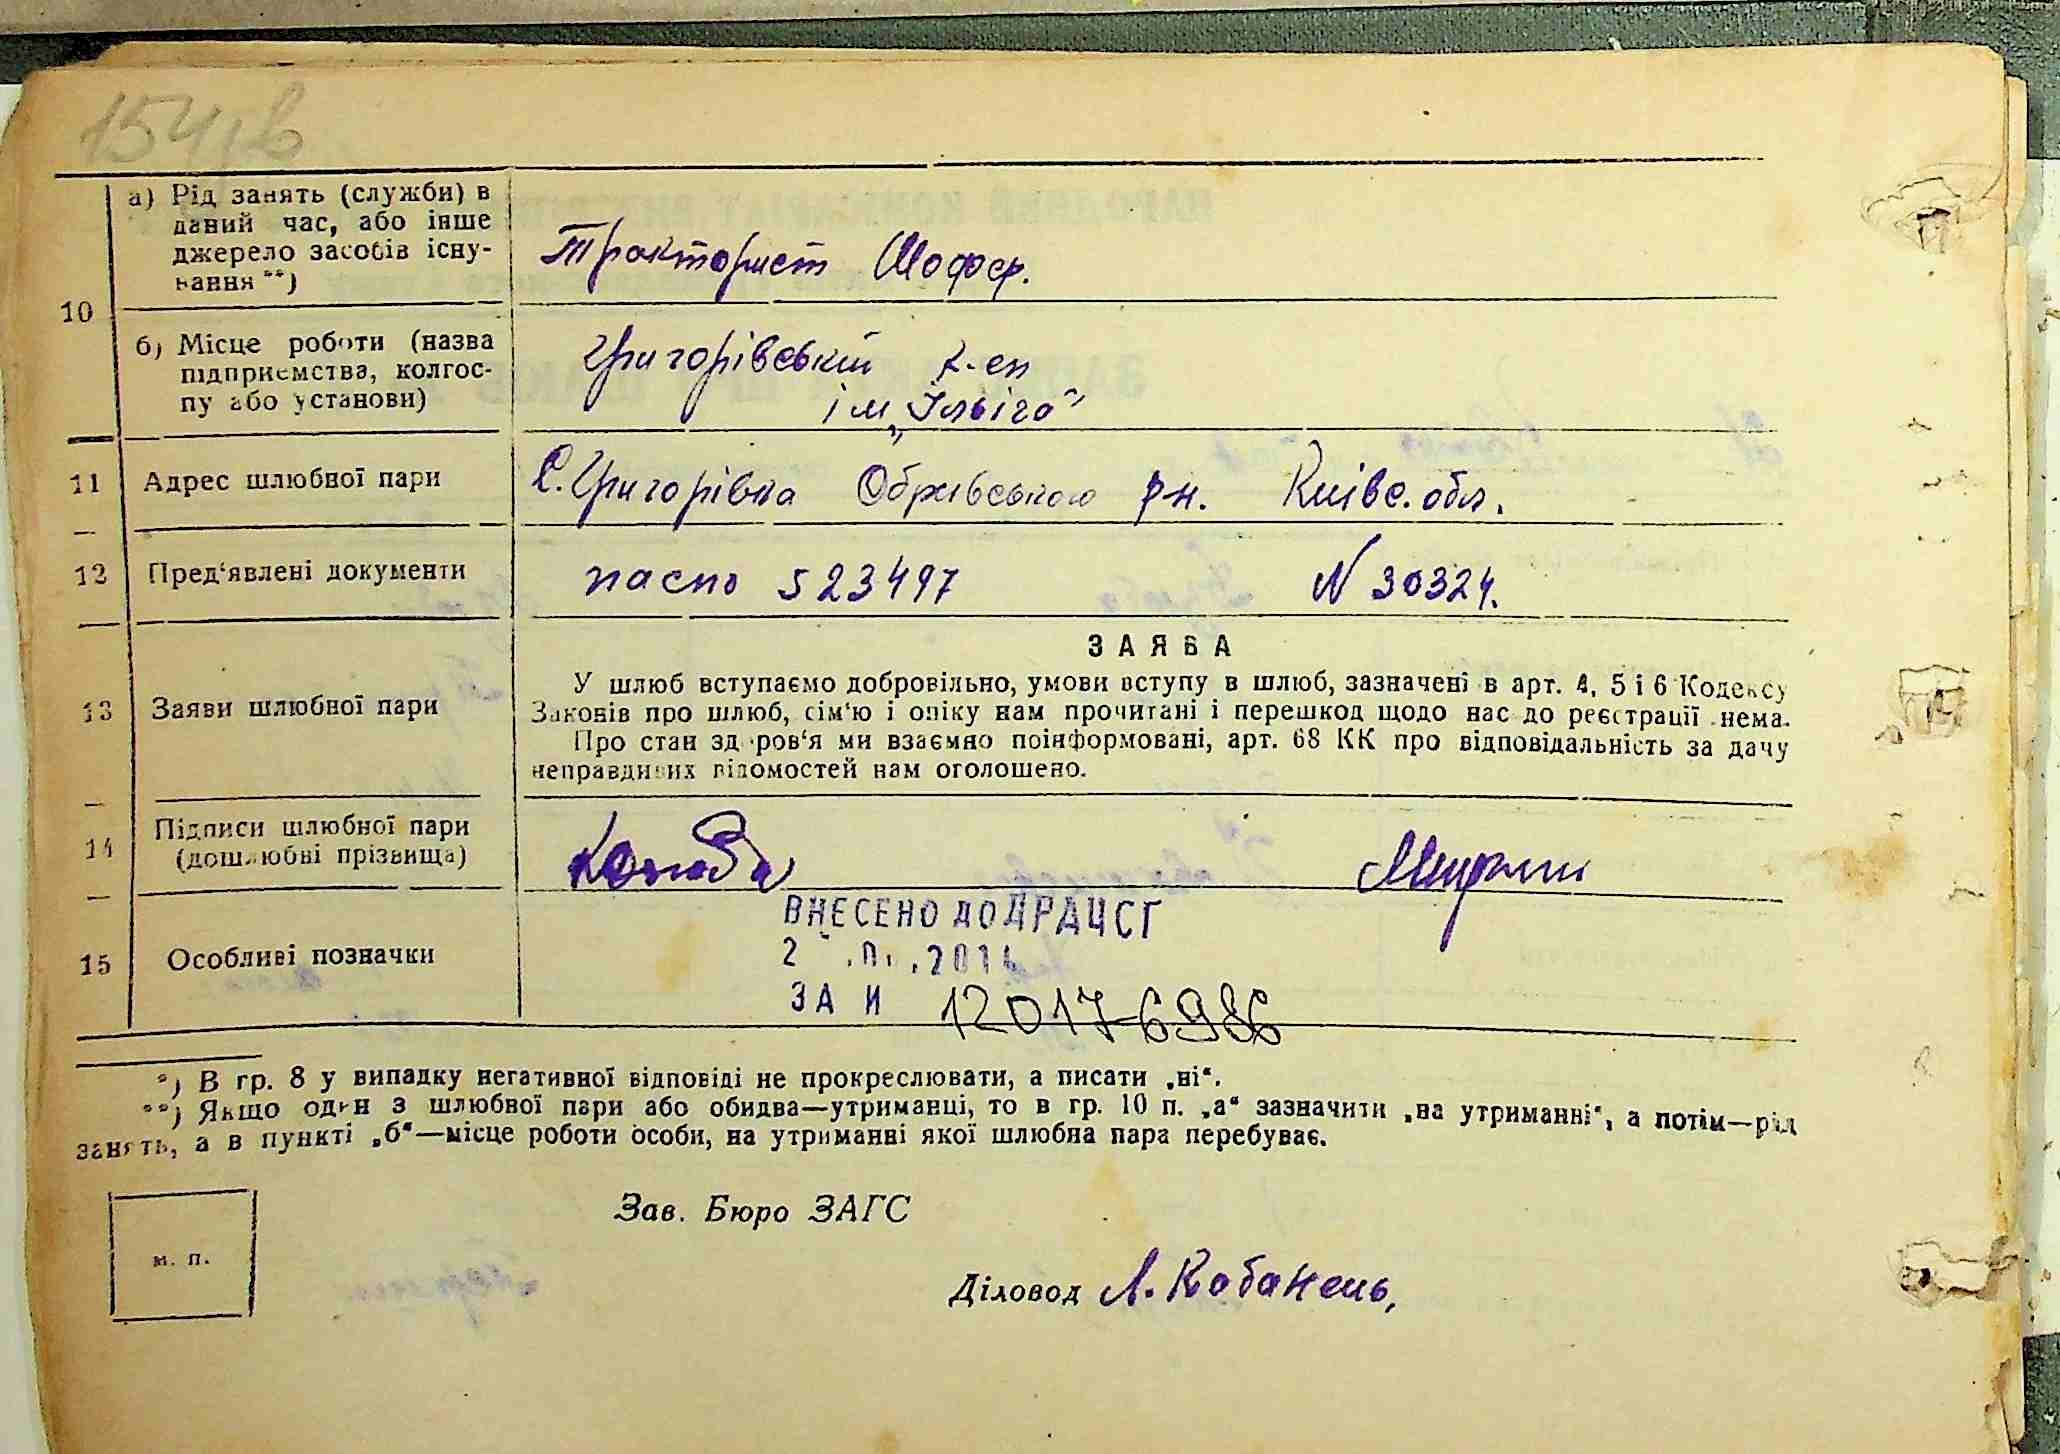 154 зв
а) Рід занять (служби) в
даний час, або інше
джерело засобів існу-
вання **)
Тракторист Шофер.
10
б) Місце роботи (назва
підприємства, колгос-
пу або установи)
Григорівський к-сп
ім „Ілліча"
11 Адрес шлюбної пари С. Григорівка Обухівського р-н. Київс. обл.
12 Пред'явлені документи паспо 523497 N 30324.
ЗАЯВА
13 Заяви шлюбної пари
У шлюб вступаємо добровільно, умови вступу в шлюб, зазначені в арт. 4, 5 і 6 Кодексу
Законів про шлюб, сім'ю і опіку нам прочитані і перешкод щодо нас до реєстрації нема.
Про стан здоров'я ми взаємно поінформовані, арт. 68 КК про відповідальність за дачу
неправдивих відомостей нам оголошено.
14 Підписи шлюбної пари
(дошлюбні прізвища)
ВНЕСЕНО ДО ДРАЦСГ
15 Особливі позначки
ЗА И 120176986
*) В гр. 8 у випадку негативної відповіді не прокреслювати, а писати „ні".
**) Якщо один з шлюбної пари або обидва—утриманці, то в гр. 10 п. „а" зазначити „на утриманні", а потім—рід
занять, а в пункті „б"—місце роботи особи, на утриманні якої шлюбна пара перебуває.
Зав. Бюро ЗАГС
м. п.
Діловод Л. Кабанець,